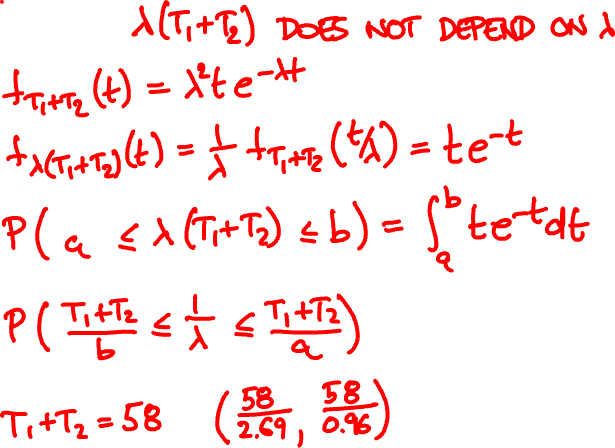 λ(T₁+T₂) DOES NOT DEPEND ON λ
f_{T₁+T₂}(t) = λ²te^{-λt}
f_{λ(T₁+T₂)}(t) = 1/λ f_{T₁+T₂}(t/λ) = te^{-t}
P( a ≤ λ(T₁+T₂) ≤ b) = ∫_a^b te^{-t}dt
P( (T₁+T₂)/b ≤ 1/λ ≤ (T₁+T₂)/a )
T₁+T₂ = 58 (58/2.69, 58/0.96)